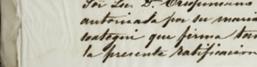 Por Lic. D. Crisprimano
autorizada por su maria
eategui que firma tam
la presente ratificacion